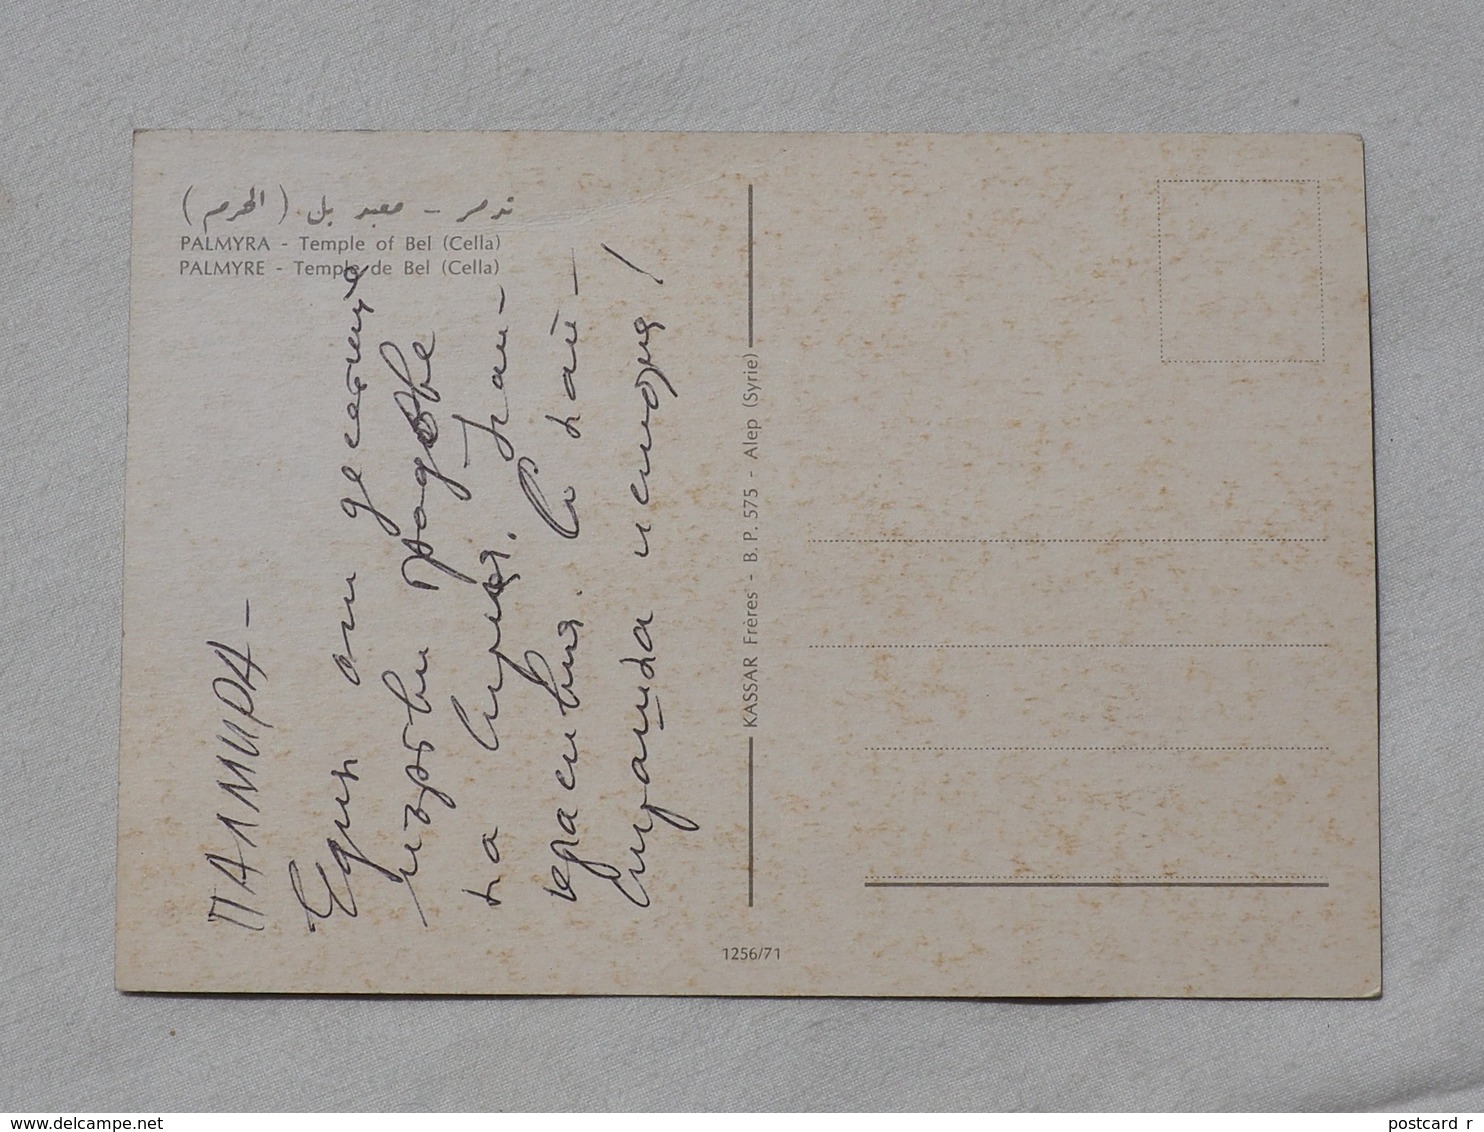 تدمر - معبد بل (الحرم)
PALMYRA - Temple of Bel (Cella)
PALMYRE - Temple de Bel (Cella)
ПАЛМИРА –
Един от десетте
мъртви градове
на Сирия. Най-
красивия. С най-
страшна история!
KASSAR Frères - B. P. 575 - Alep (Syrie)
1256/71
postcard r